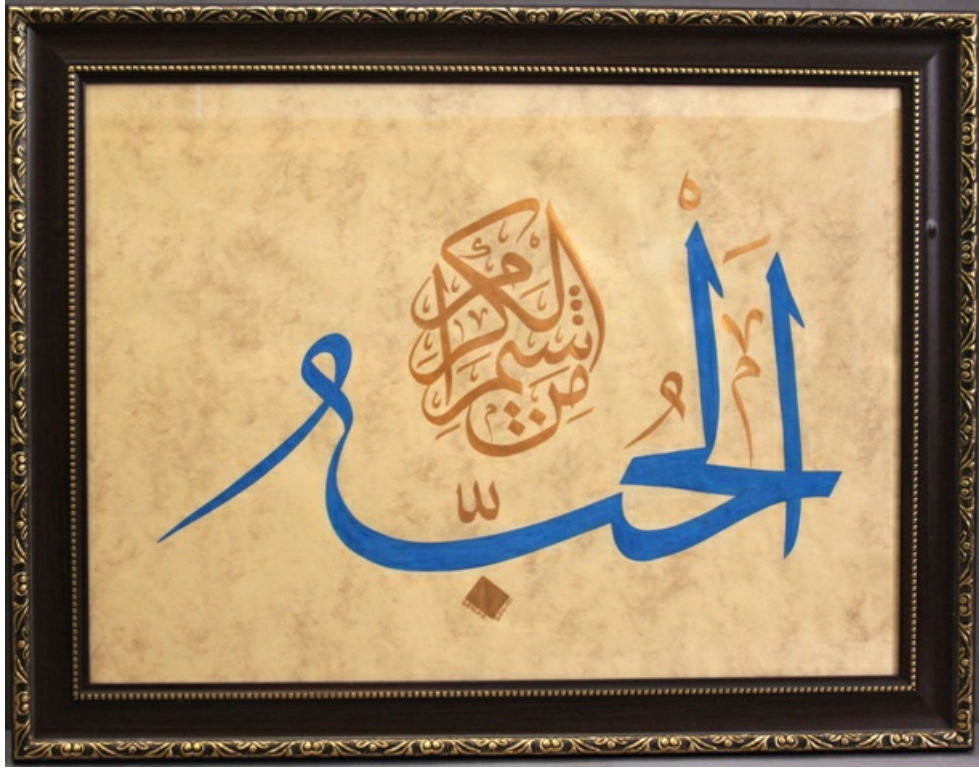 الْحُبُّ
مِنْ شِيَمِ الْكِرَامِ